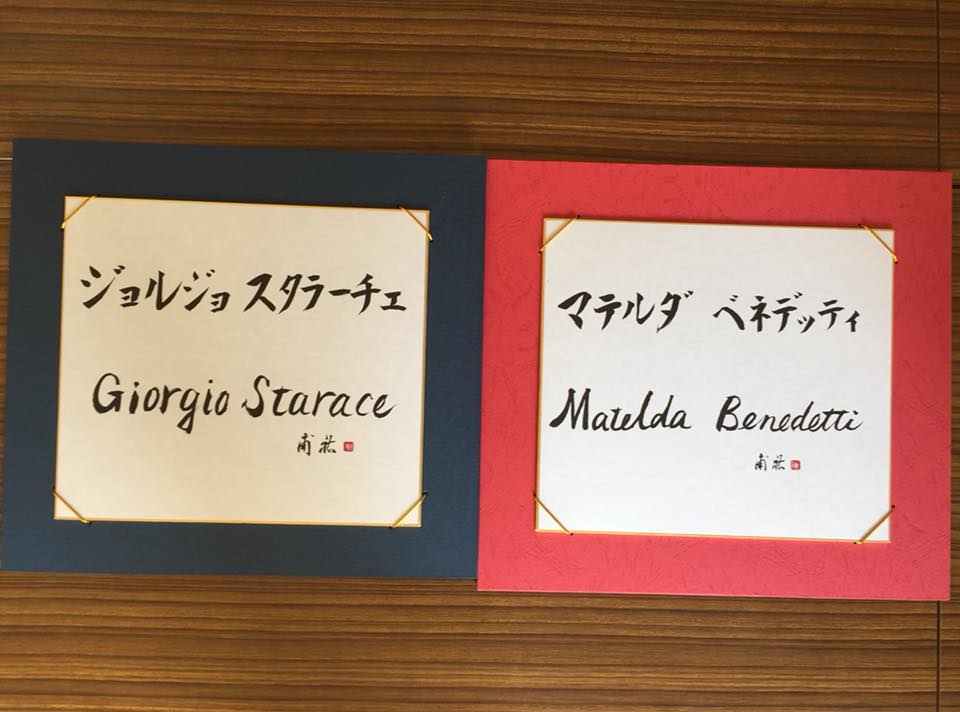 ジョルジョ スタラーチェ
Giorgio Starace
マテルダ ベネデッティ
Matelda Benedetti